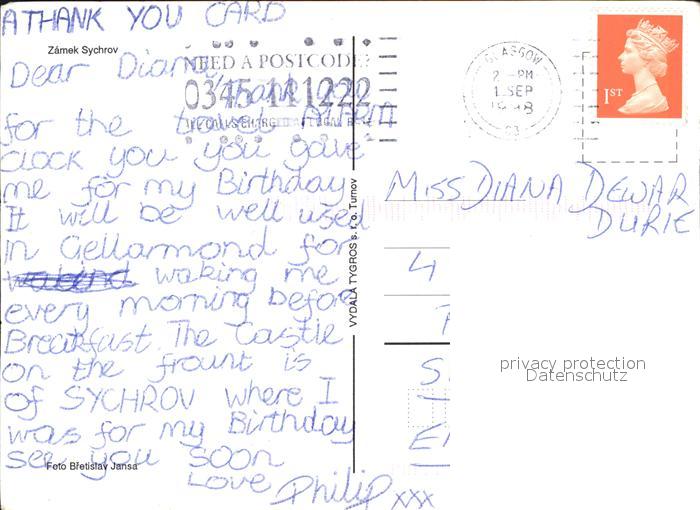 A THANK YOU CARD
Zámek Sychrov
Dear Diana, Thank you
for the travel alarm
clock you you gave
me for my Birthday
It will be well used
in Gellarmond for
waking me
every morning before
Breakfast. The Castle
on the frount is
of SYCHROV where I
was for my Birthday
see you soon
Foto Břetislav Jansa
Love Philip xxx
VYDALA TYGROS s. r. o. Turnov
NEED A POSTCODE?
0345 111222
ALL CALLS CHARGED AT LOCAL RATE
GLASGOW
PM
1 SEP
1998
G3
1ST
MISS DIANA DEWAR
DURIE
4
S
E
privacy protection
Datenschutz